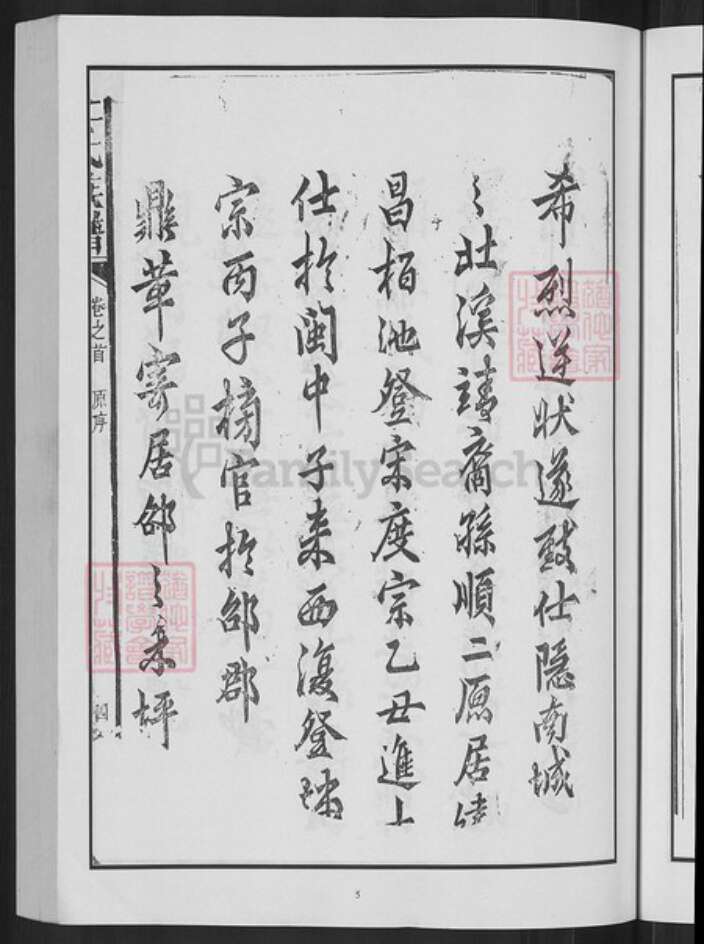 希烈逆狀遂致仕隱南城
之壯溪靖裔孫順二原居
昌栢池登宋度宗乙丑進士
仕於閩中子来西復登
宗丙子榜官於邵郡
鼎革寄居邵之来坪
卷之首 原序
四
FamilySearch
5